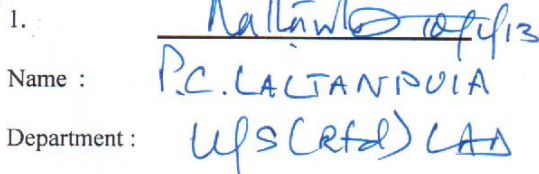 1. 10/4/13
Name : P.C. LALTANPUIA
Department : U/S (Rtd) LAD